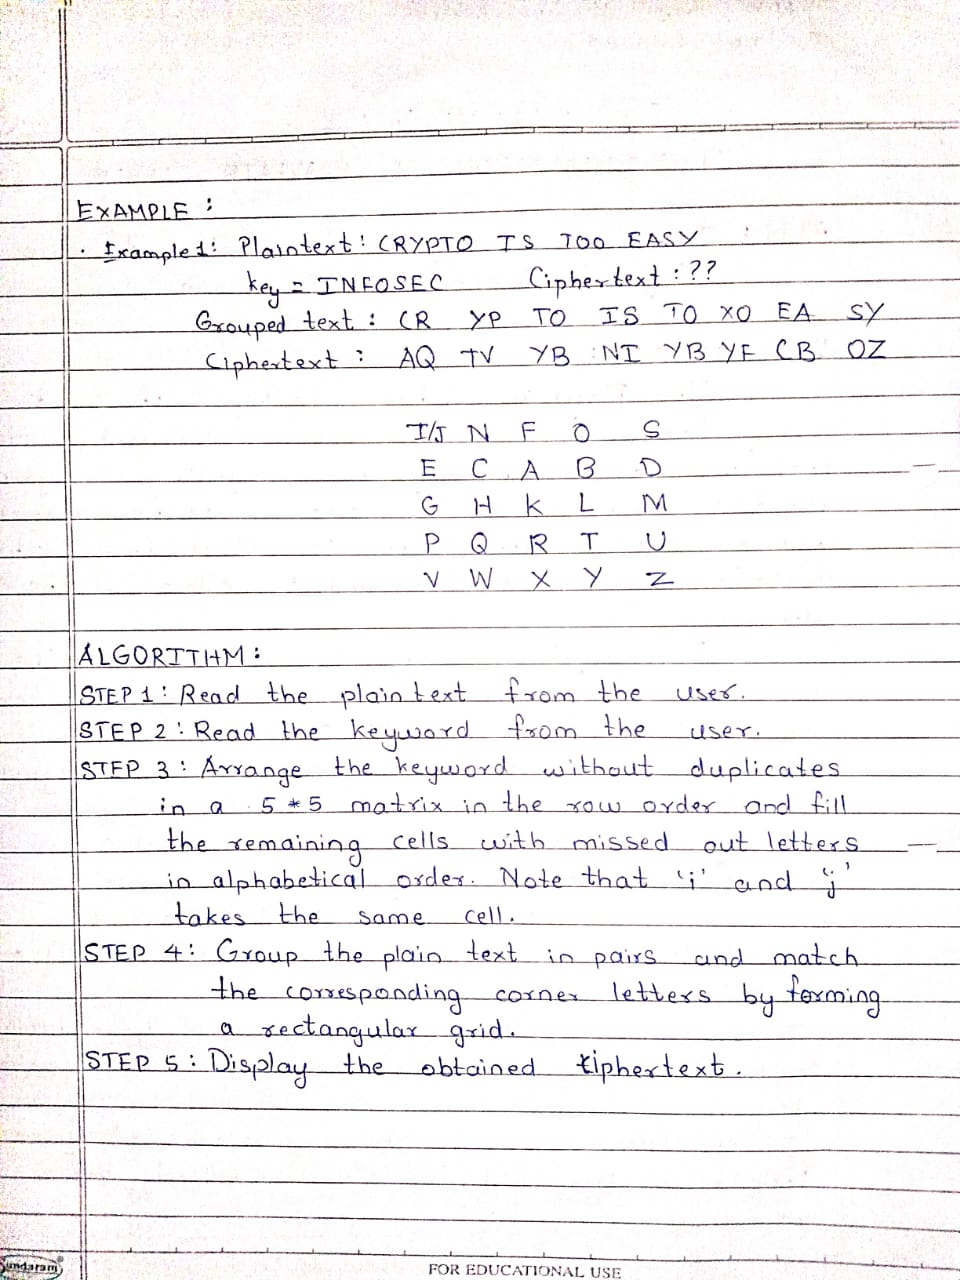 EXAMPLE :
· Example 1: Plaintext : CRYPTO IS TOO EASY
key = INFOSEC Ciphertext : ??
Grouped text : CR YP TO IS TO XO EA SY
Ciphertext : AQ TV YB NI YB YF CB OZ
I/J N F O S
E C A B D
G H K L M
P Q R T U
V W X Y Z
ALGORITHM :
STEP 1 : Read the plain text from the user.
STEP 2 : Read the keyword from the user.
STEP 3 : Arrange the keyword without duplicates
in a 5 * 5 matrix in the row order and fill
the remaining cells with missed out letters
in alphabetical order. Note that 'i' and 'j'
takes the same cell.
STEP 4 : Group the plain text in pairs and match
the corresponding corner letters by forming
a rectangular grid.
STEP 5 : Display the obtained ciphertext.
Sundaram
FOR EDUCATIONAL USE